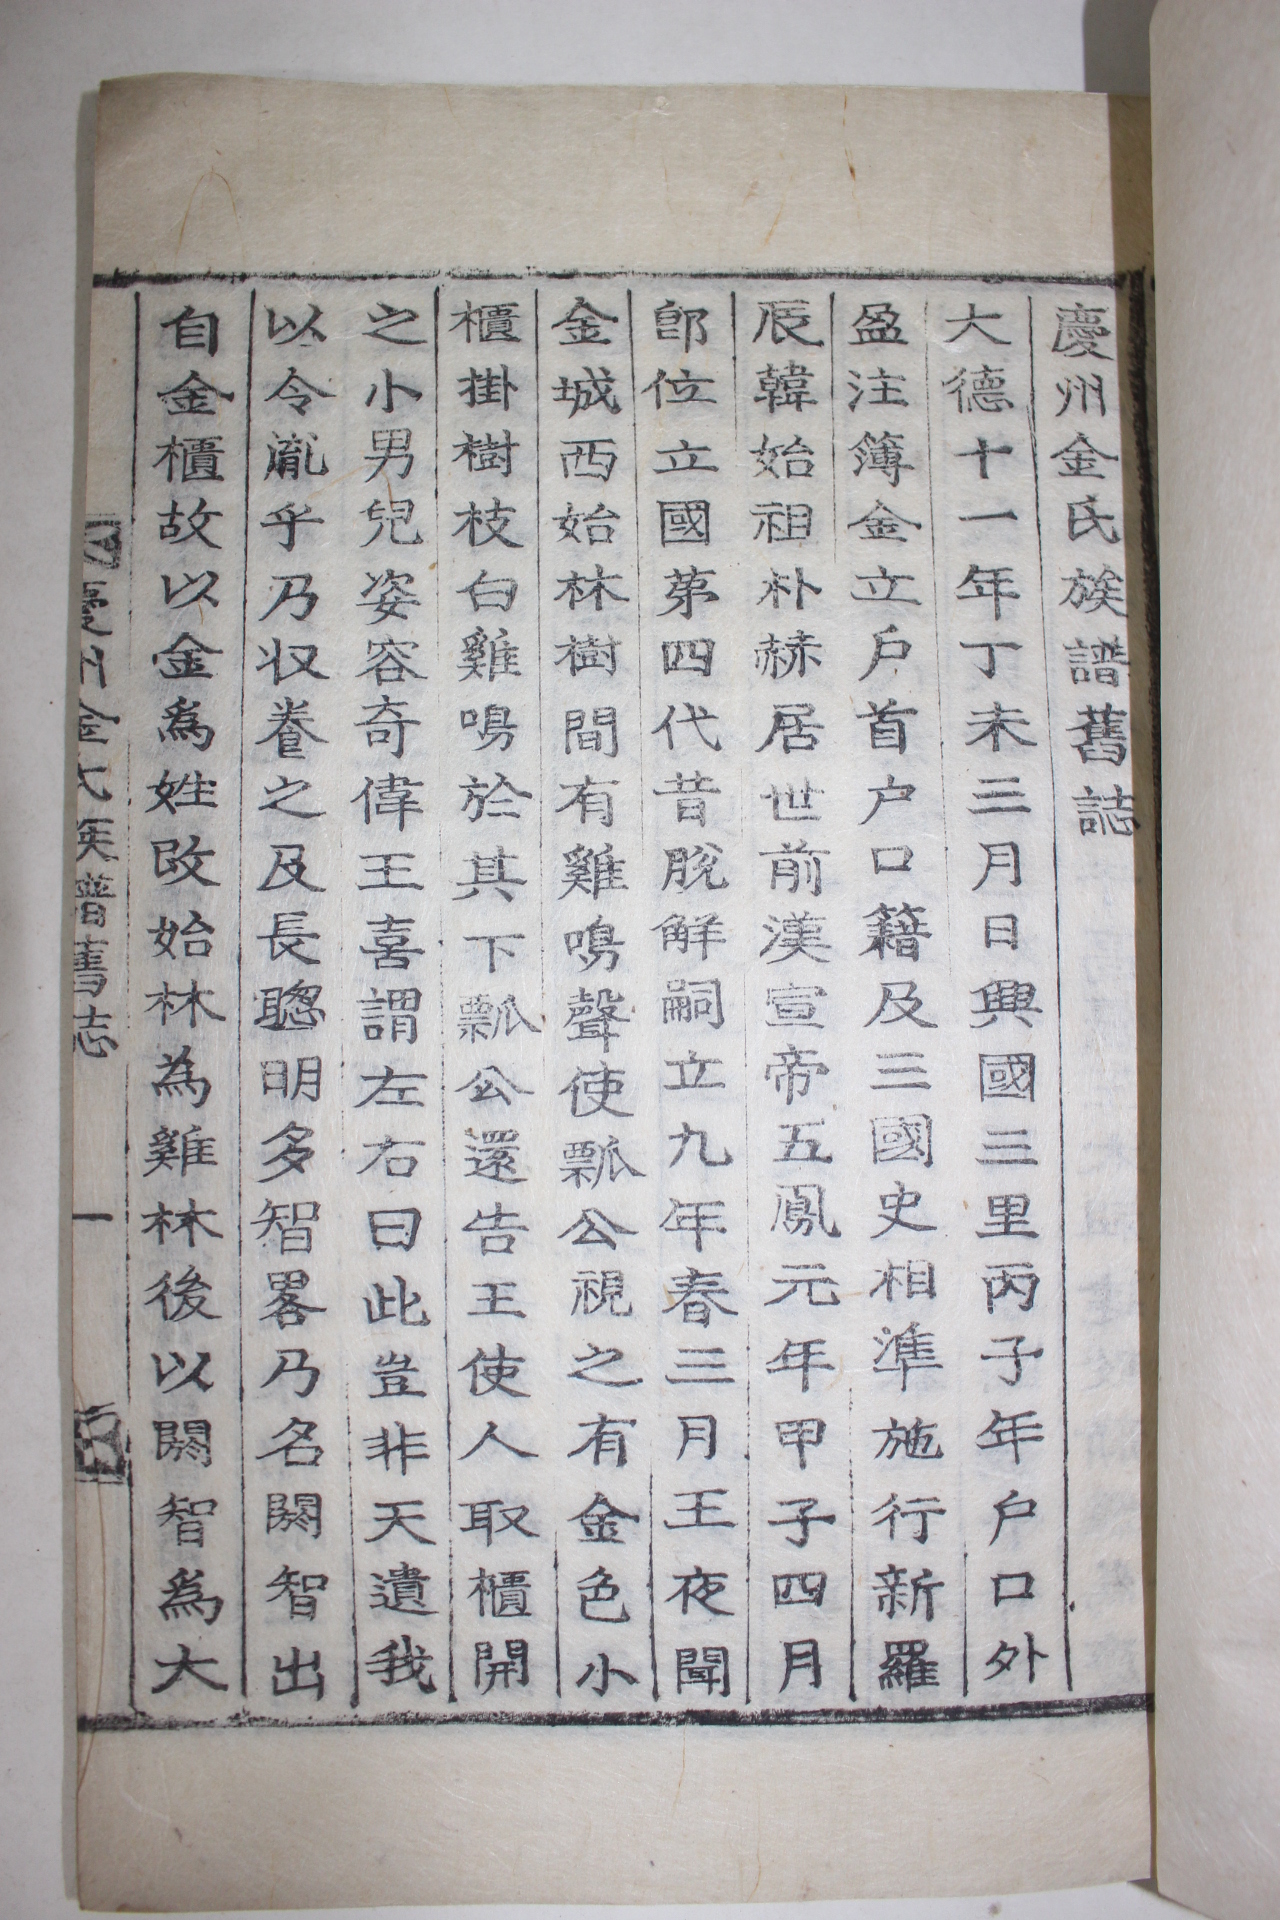 慶州金氏族譜舊誌
大德十一年丁未三月日興國三里丙子年戶口外
盈注簿金立戶首户口籍及三國史相準施行新羅
辰韓始祖朴赫居世前漢宣帝五鳳元年甲子四月
卽位立國苐四代昔脫解嗣立九年春三月王夜聞
金城西始林樹間有雞鳴聲使瓢公視之有金色小
櫃掛樹枝白雞鳴於其下瓢公還告王使人取櫃開
之小男兒姿容奇偉王喜謂左右曰此豈非天遺我
以令胤乎乃収養之及長聰明多智畧乃名閼智出
自金櫃故以金爲姓改始林為雞林後以閼智爲大
慶州金氏族譜舊志
一